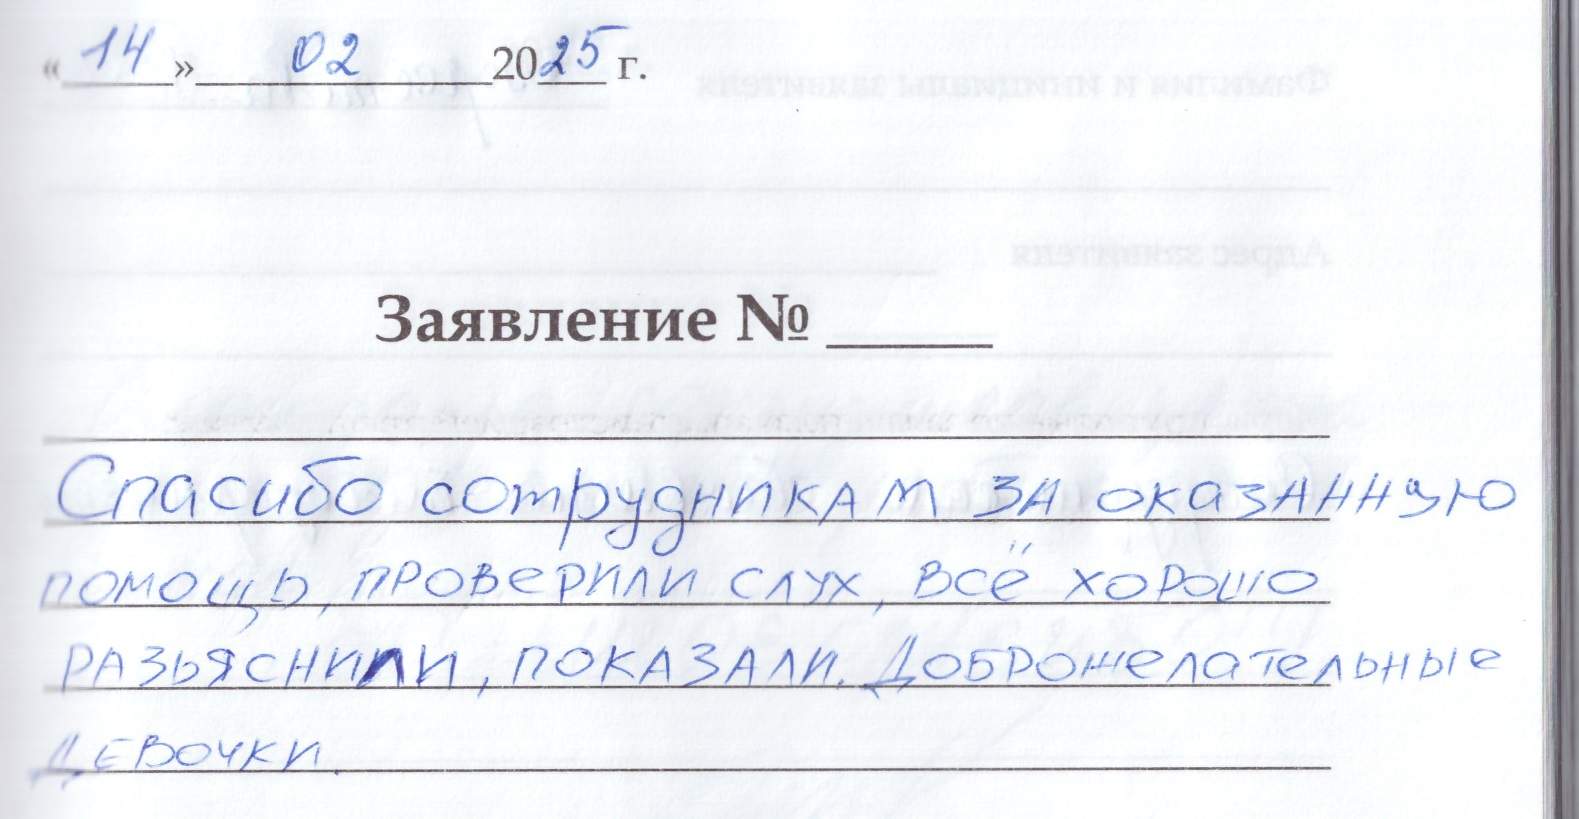 « 14 » 02 2025 г.
Заявление № ______
Спасибо сотрудникам за оказанную
помощь, проверили слух, всё хорошо
разьяснили, показали. Доброжелательные
девочки.